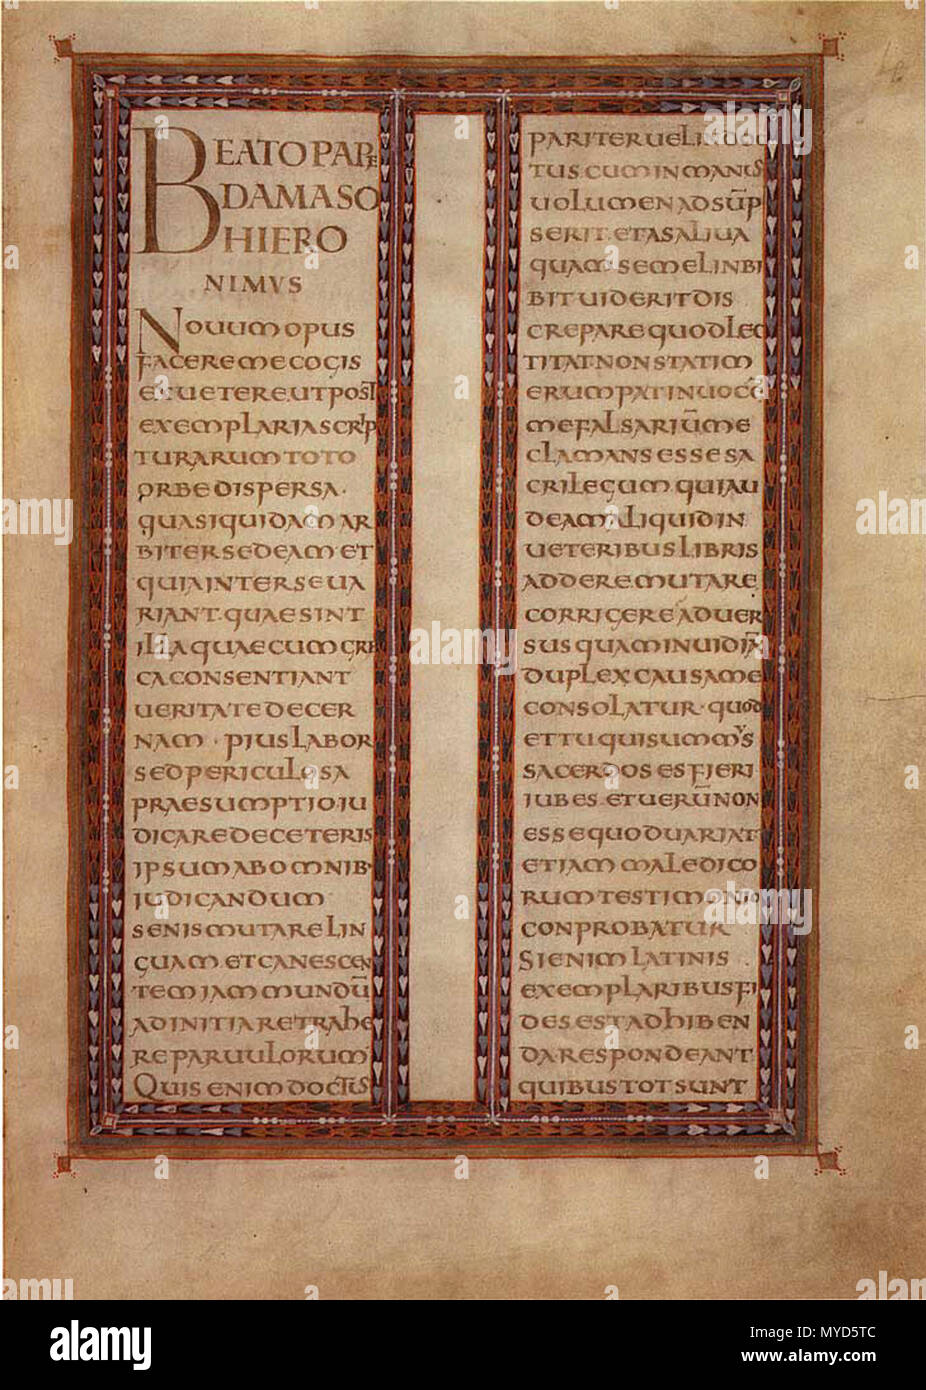 BEATO PAPĘ
DAMASO
HIERO
NIMVS
NOUUM OPUS
FACERE ME COGIS
EX UETERE. UT POST
EXEMPLARIA SCRIP
TURARUM TOTO
ORBE DISPERSA.
QUASI QUIDAM AR
BITER SEDEAM ET
QUIA INTER SE UA
RIANT. QUAE SINT
ILLA QUAE CUM GRE
CA CONSENTIANT
UERITATE DECER
NAM. PIUS LABOR
SED PERICULOSA
PRAESUMPTIO IU
DICARE DE CETERIS
IPSUM AB OMNIB.
IUDICANDUM
SENIS MUTARE LIN
GUAM. ET CANESCEN
TEM IAM MUNDŪ
AD INITIA RETRAHE
RE PARUULORUM
QUIS ENIM DOCTUS
PARITER UEL INDOC
TUS. CUM IN MANUS
UOLUMEN ADSŪP
SERIT. ET A SALIUA
QUAM SEMEL INBI
BIT UIDERIT DIS
CREPARE QUOD LEC
TITAT. NON STATIM
ERUMPAT IN UOCĒ
ME FALSARIŪ ME
CLAMANS ESSE SA
CRILEGUM. QUI AU
DEAM ALIQUID IN
UETERIBUS LIBRIS
ADDERE. MUTARE
CORRIGERE. ADUER
SUS QUAM INUIDIĀ
DUPLEX CAUSA ME
CONSOLATUR. QUOD
ET TU QUI SUMMUS
SACERDOS ES FIERI
IUBES. ET UERŪ NON
ESSE QUOD UARIAT
ETIAM MALEDICO
RUM TESTIMONIO
CONPROBATUR
SI ENIM LATINIS
EXEMPLARIBUS FI
DES EST ADHIBEN
DA RESPONDEANT
QUIBUS TOT SUNT
alamy
Image ID: MYD5TC
www.alamy.com